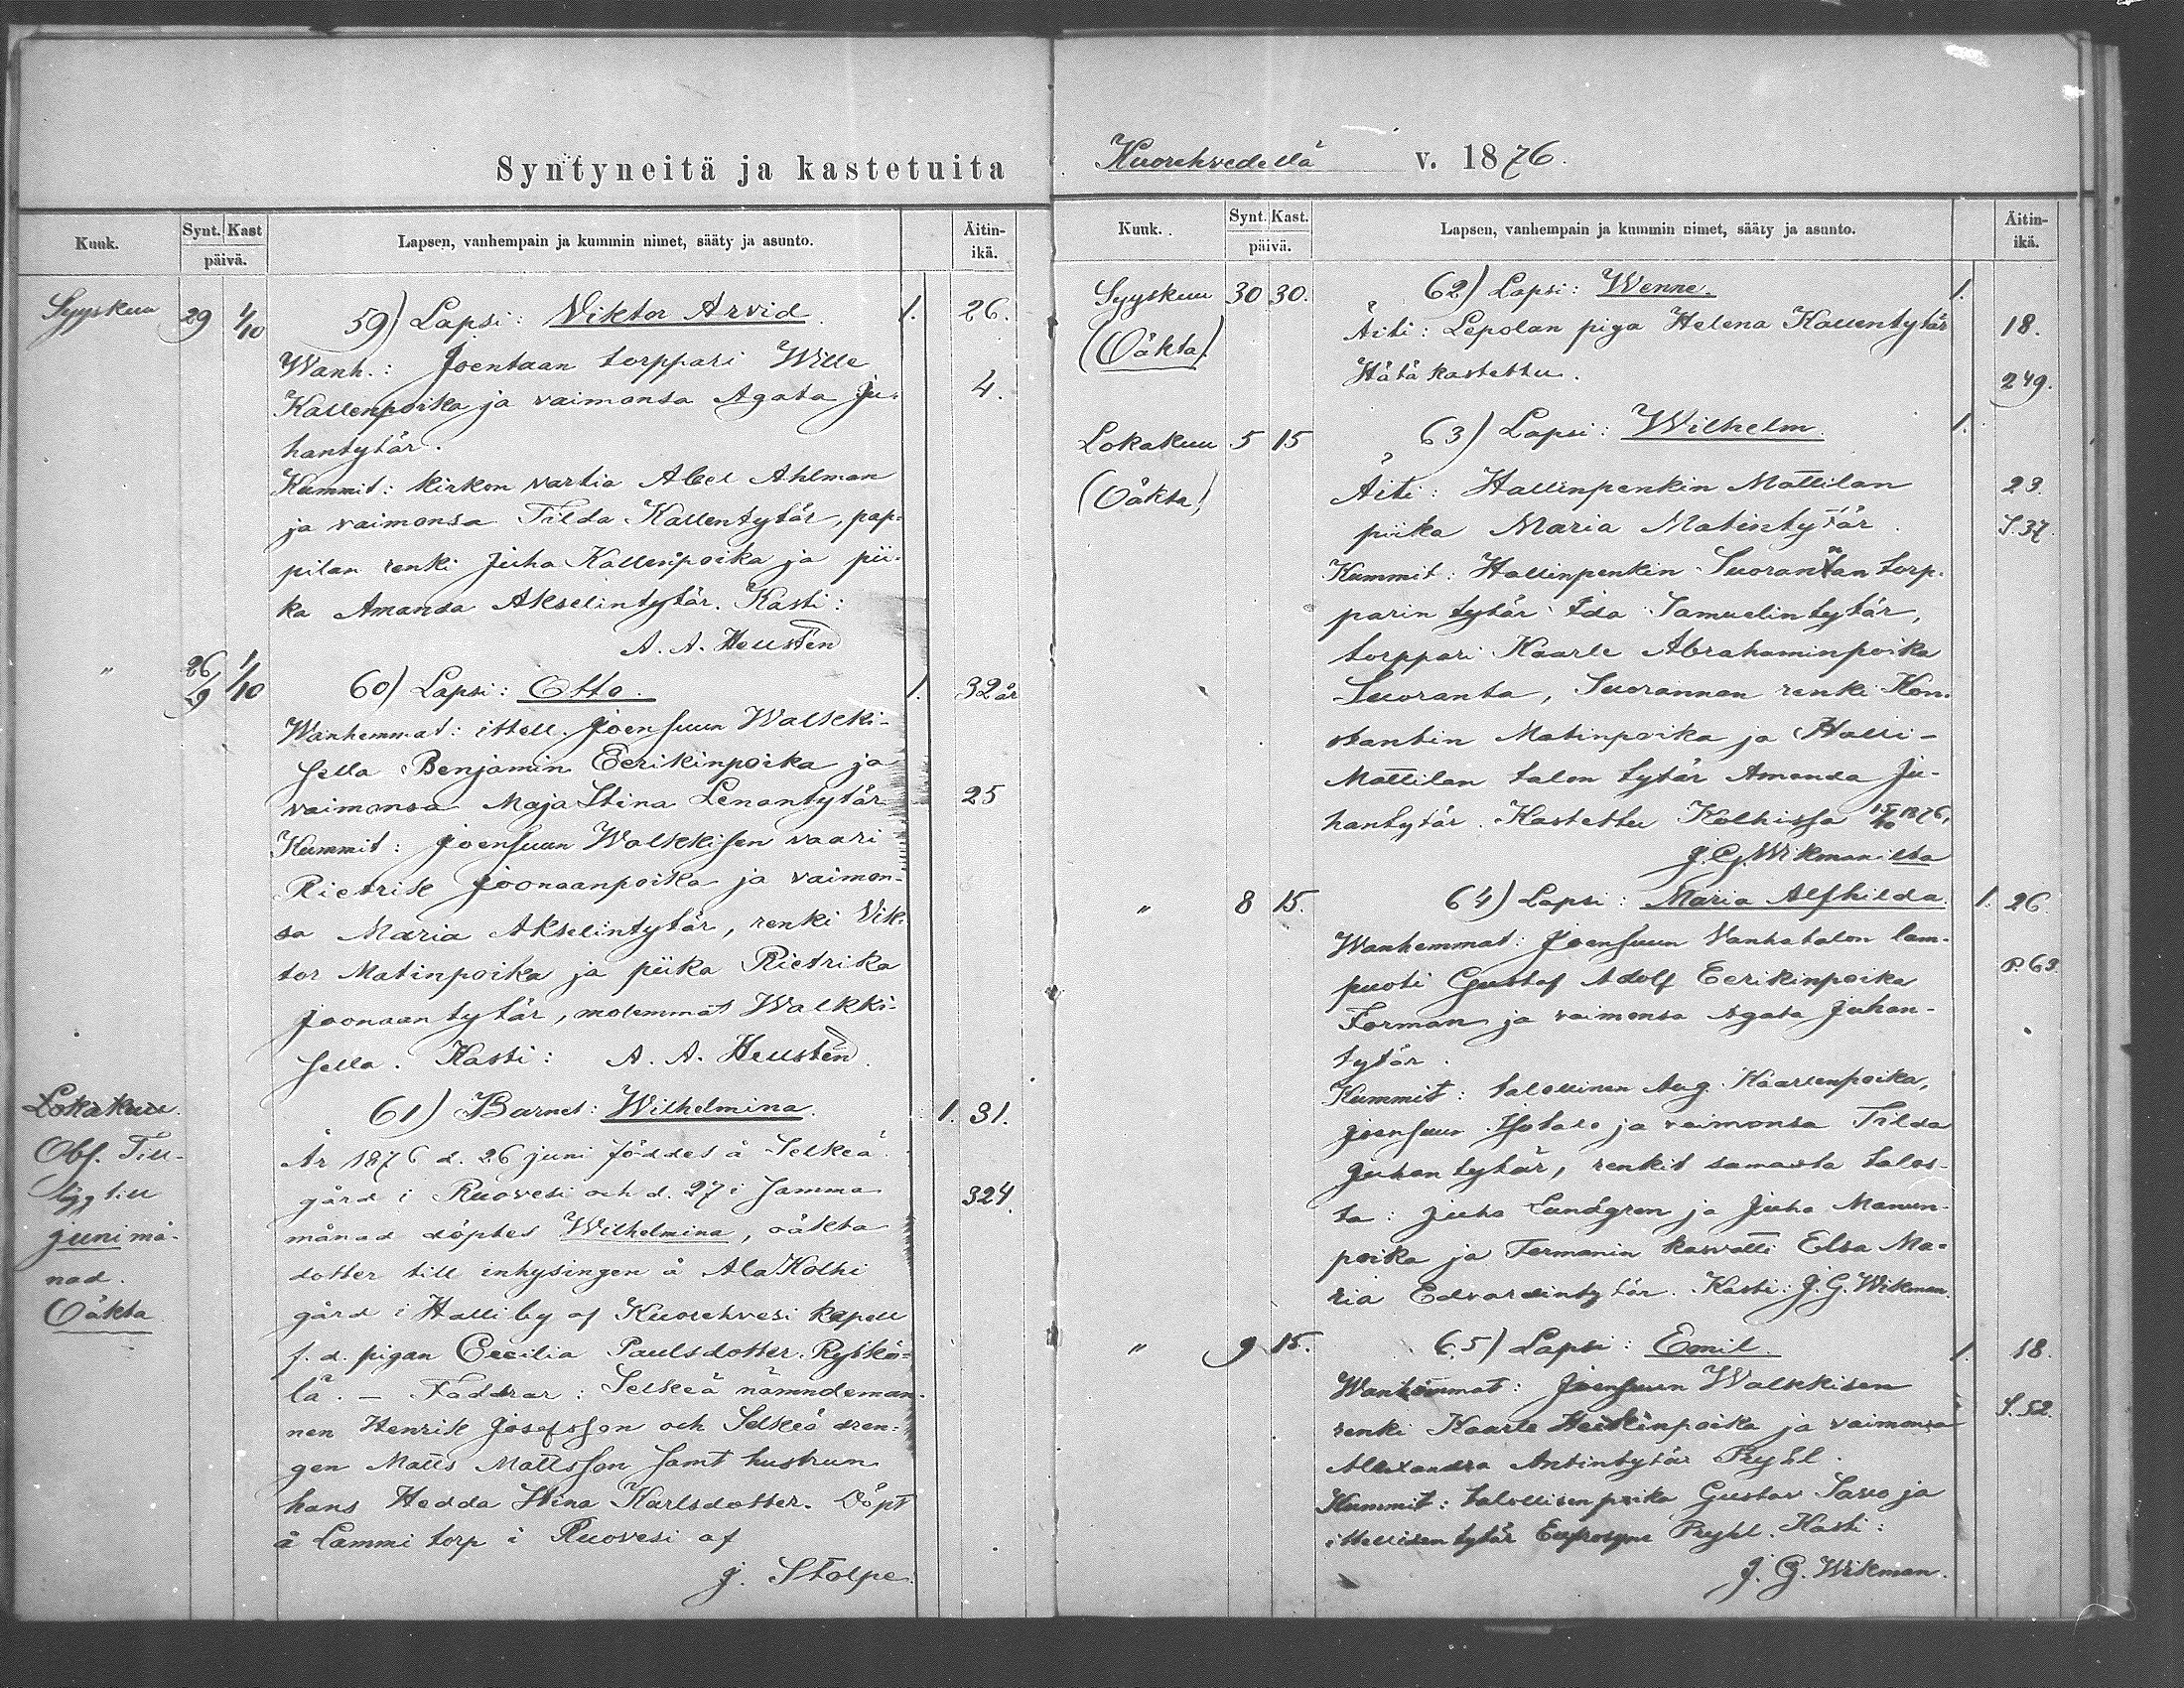 Syntyneitä ja kastetuita
Kuuk.
Synt. Kast
päivä.
Lapsen, vanhempain ja kummin nimet, sääty ja asunto.
Äitin-
ikä.
Syyskuu 29 1/10 59) Lapsi: Viktor Arvid. 1. 26.
Wanh.: Joentaan torppari Wille
Kallenpoika ja vaimonsa Agata Ju- 4.
hantytär.
Kummit: kirkon vartia Abel Ahlman
ja vaimonsa Tilda Kallentytär, pap-
pilan renki Juha Kallenpoika ja pii-
ka Amanda Akselintytär. Kasti:
A. A. Heustén
" 26/9 1/10 60) Lapsi: Otto. 1. 32 år
Wanhemmat: ittell. Joensuun Walkki-
sella Benjamin Eerikinpoika ja
vaimonsa Maja Stina Lenantytär 25
Kummit: Joensuun Walkkisen vaari
Rietrik Joonaanpoika ja vaimon-
sa Maria Akselintytär, renki Vik-
tor Matinpoika ja piika Rietrika
Joonaantytär, molemmat Walkki-
sella. Kasti: A. A. Heustén.
Lokakuu. 61) Barnet: Wilhelmina. 1. 31.
Obs. Till- År 1876 d. 26 juni föddes å Selkeä
lägg till gård i Ruovesi och d. 27 i samma 324.
juni må- månad döptes Wilhelmina, oäkta
nad. dotter till inhysingen å Ala Kolhi
Oäkta gård i Halli by af Kuorehvesi kapell
f. d. pigan Cecilia Paulsdotter Rytkö-
lä. – Faddrar: Selkeä nämndeman-
nen Henrik Josefsson och Selkeä drän-
gen Matts Mattsson samt hustrun
hans Hedda Stina Karlsdotter. Döpt
å Lammi torp i Ruovesi af
J. Stolpe.
Kuorehvedellä v. 1876.
Kuuk.
Synt. Kast.
päivä.
Lapsen, vanhempain ja kummin nimet, sääty ja asunto.
Äitin-
ikä.
Syyskuu 30 30. 62) Lapsi: Wenne. 1.
(Oäkta). Äiti: Lepolan piga Helena Kallentytär 18.
Hätäkastettu. 249.
Lokakuu 5 15 63) Lapsi: Wilhelm. 1.
(Oäkta) Äiti: Hallinpenkin Mattilan 23.
piika Maria Matintytär. S. 37.
Kummit: Hallinpenkin Suorannan torp-
parin tytär Ida Samuelintytär,
torppari Kaarle Abrahaminpoika
Suoranta, Suorannan renki Kon-
stantin Matinpoika ja Halli-
Mattilan talon tytär Amanda Ju-
hantytär. Kastettu Kolhissa 15/10 1876,
J. G. Wikmanilta
" 8 15. 64) Lapsi: Maria Alfhilda. 1. 26.
Wanhemmat: Joensuun Vanhatalon lam-
puoti Gustaf Adolf Eerikinpoika P. 63.
Forman ja vaimonsa Agata Juhan-
tytär.
Kummit: talollinen Aug. Kaarlenpoika,
Joensuun Isotalo ja vaimonsa Tilda
Juhantytär, renkit samasta talos-
ta: Juha Lundgren ja Juha Manun-
poika ja Formanin kasvatti Elsa Ma-
ria Edvardintytär. Kasti: J. G. Wikman.
" 9 15. 65) Lapsi: Emil. 1. 18.
Wanhemmat: Joensuun Walkkisen
renki Kaarle Heikinpoika ja vaimonsa S. 52.
Alexandra Antintytär Pryhl.
Kummit: talollisen poika Gustav Savo ja
ittellisen tytär Eufrosyne Pryhl. Kasti:
J. G. Wikman.